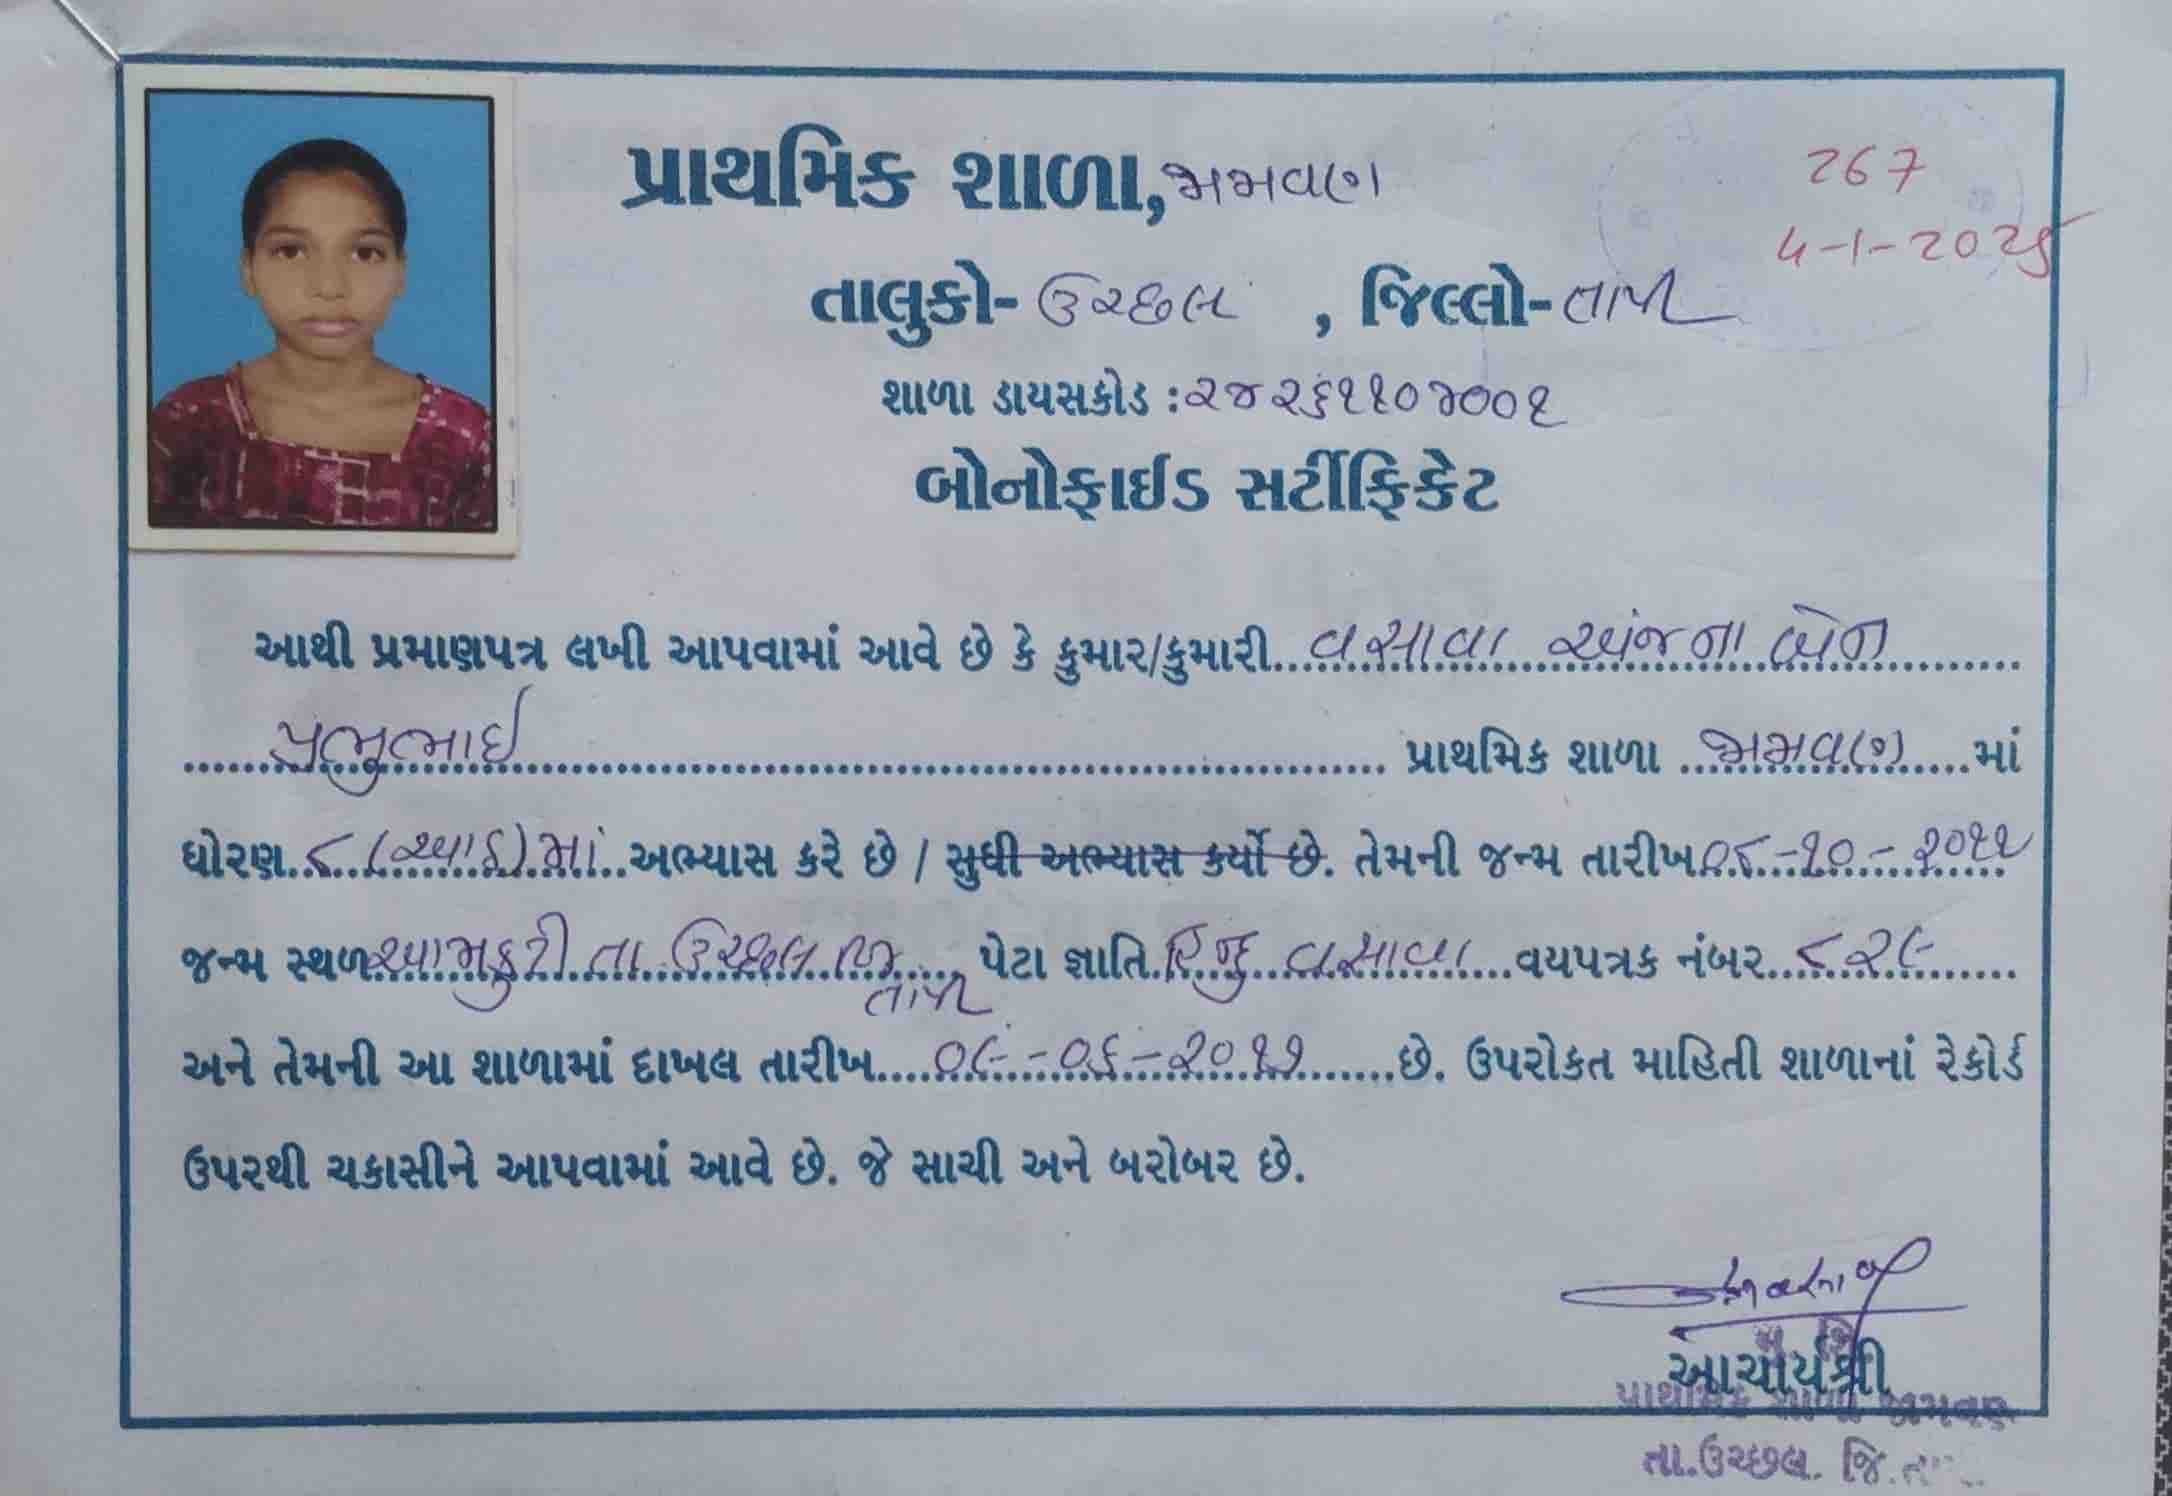 પ્રાથમિક શાળા, જામવણ
267
તાલુકો- ઉચ્છલ , જિલ્લો- તાપી
શાળા ડાયસકોડ : ૨૪૨૬૧૧૦૪૦૦૧
બોનોફાઈડ સર્ટીફિકેટ
આથી પ્રમાણપત્ર લખી આપવામાં આવે છે કે કુમાર/કુમારી વસાવા અંજના બેન
પ્રભુભાઈ પ્રાથમિક શાળા જામવણ માં
ધોરણ ૮ (આઠ) માં અભ્યાસ કરે છે / સુધી અભ્યાસ કર્યો છે. તેમની જન્મ તારીખ ૦૮-૧૦-૨૦૧૧
જન્મ સ્થળ આમકુટી તા ઉચ્છલ જિ પેટા જ્ઞાતિ હિન્દુ વસાવા વયપત્રક નંબર ૮૨૯
તાપી
અને તેમની આ શાળામાં દાખલ તારીખ ૦૯-૦૬-૨૦૧૭ છે. ઉપરોકત માહિતી શાળાનાં રેકોર્ડ
ઉપરથી ચકાસીને આપવામાં આવે છે. જે સાચી અને બરોબર છે.
આચાર્યશ્રી
પ્રાથમિક શાળા જામવણ
તા.ઉચ્છલ. જિ.